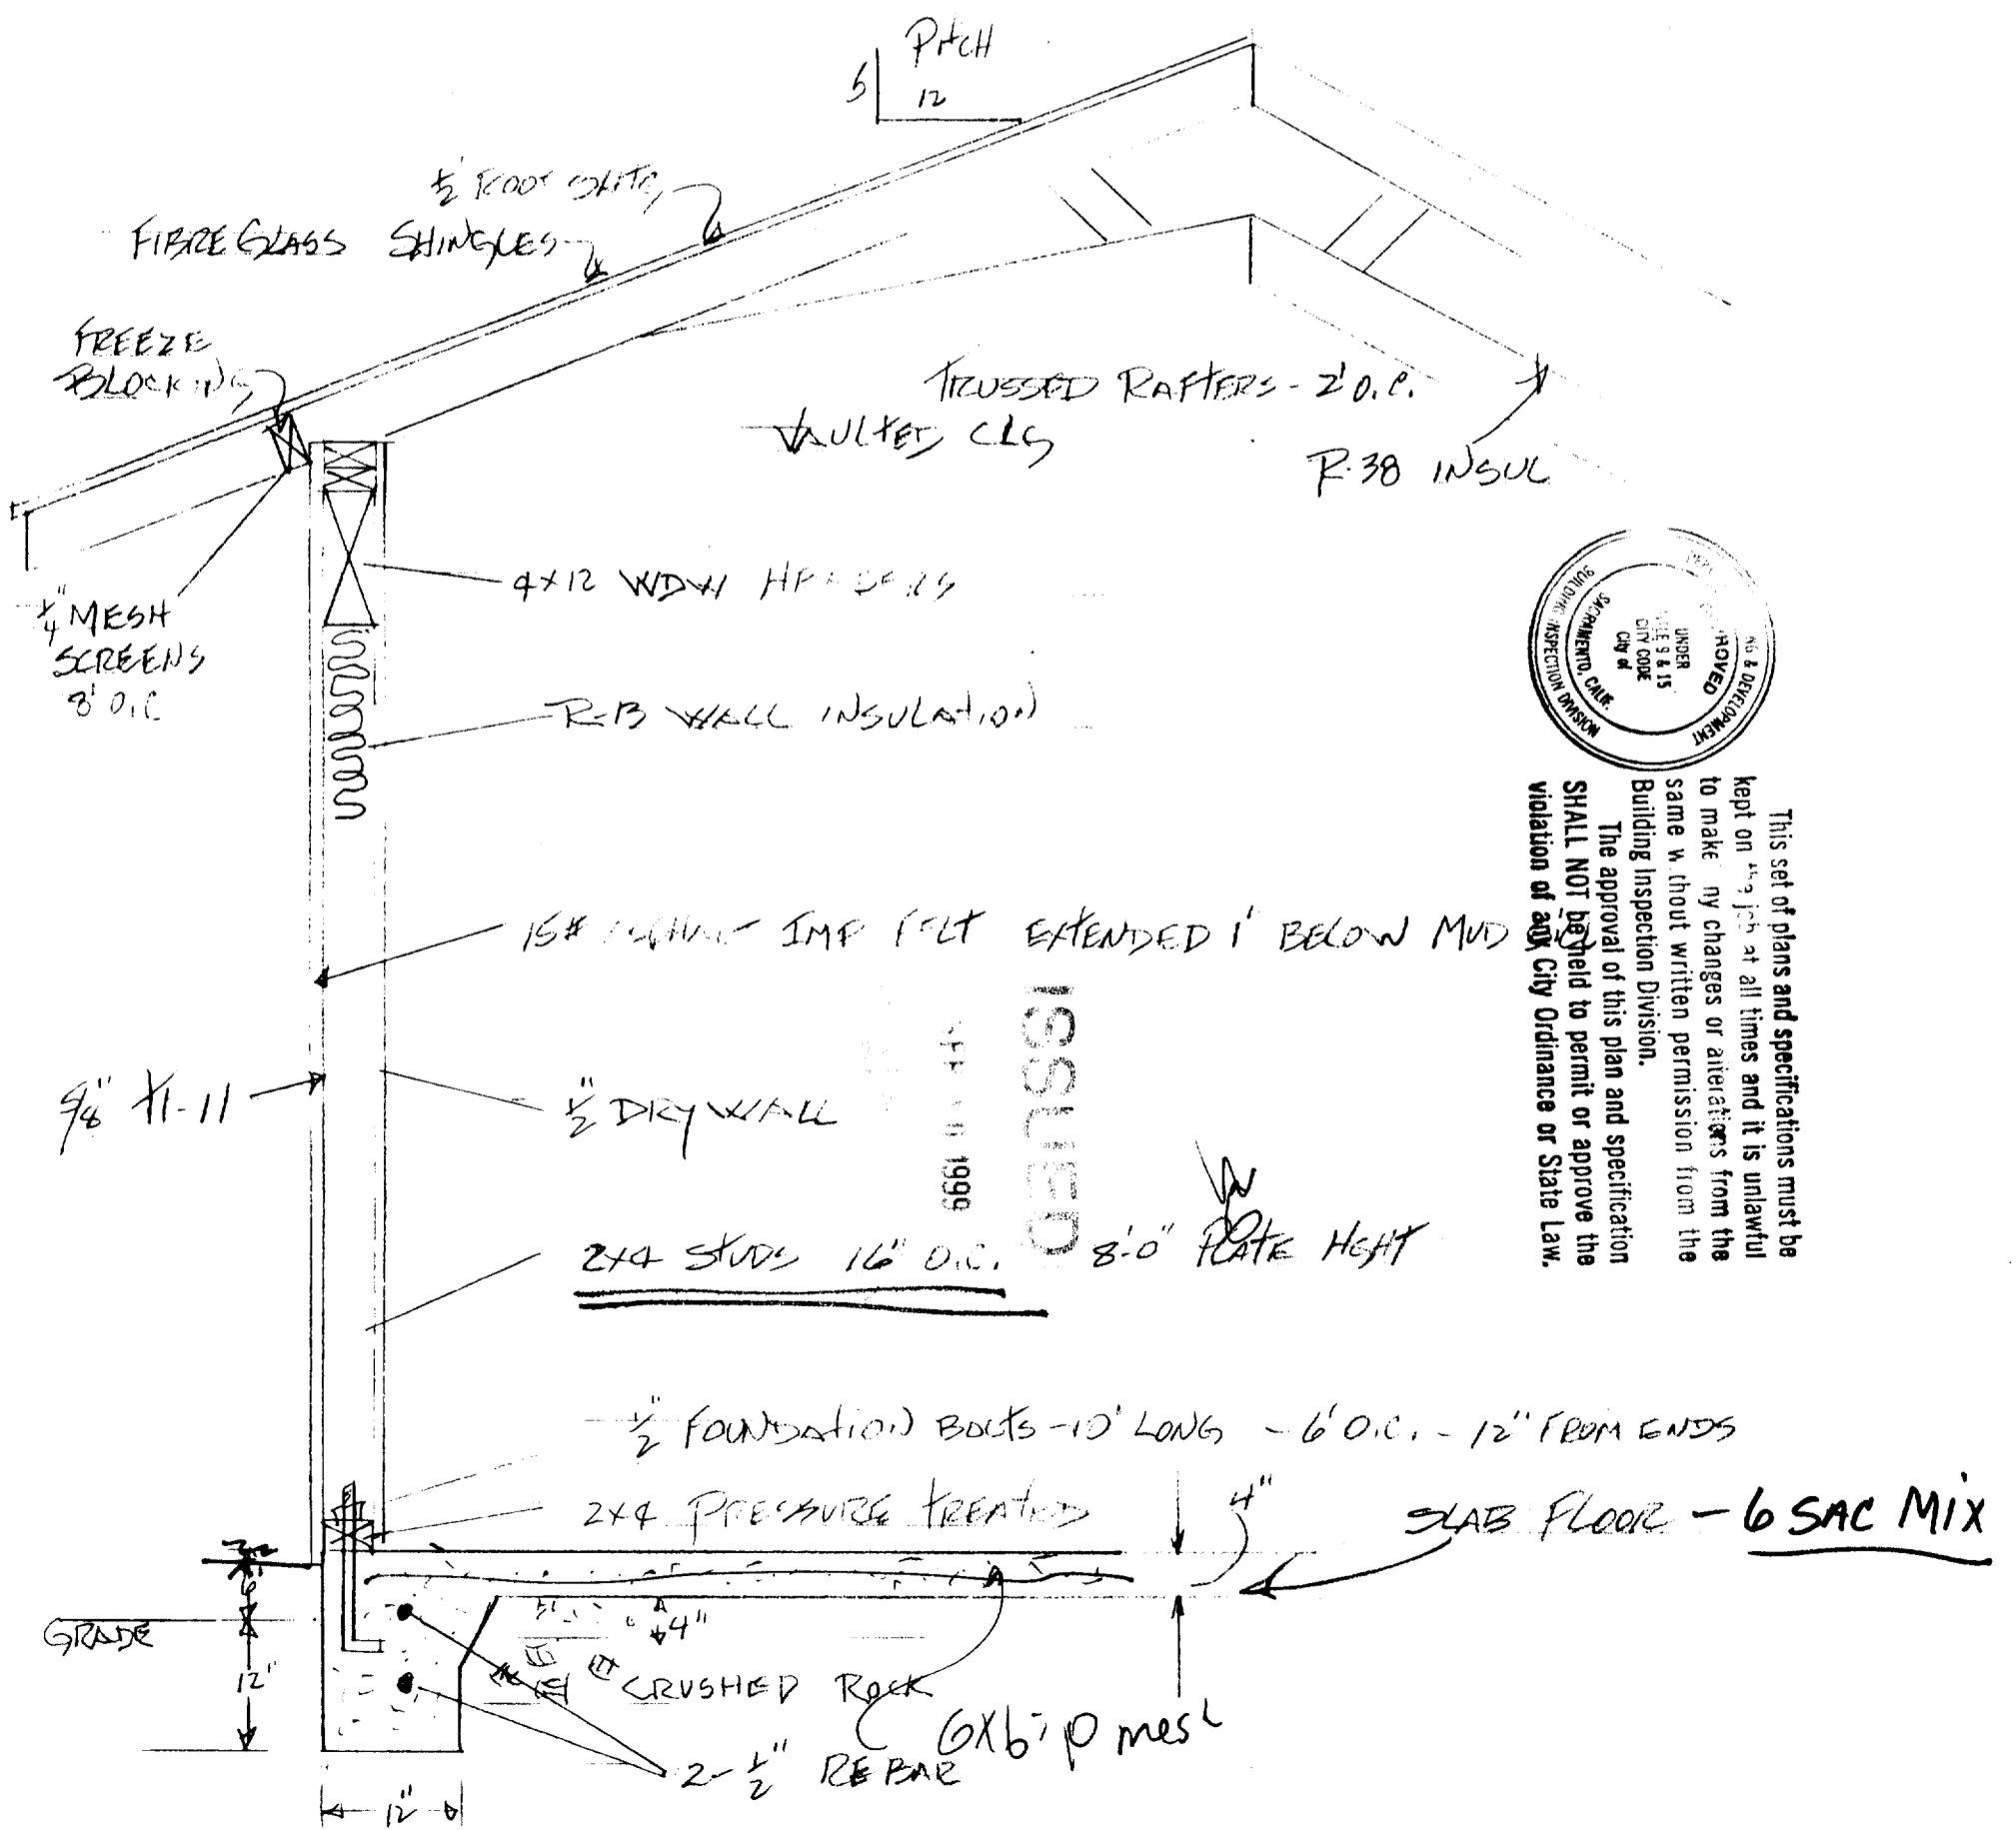 PITCH
5
12
½" ROOF SHTG
FIBRE GLASS SHINGLES
FREEZE
BLOCKING
TRUSSED RAFTERS - 2' O.C.
VAULTED CLG
R-38 INSUL
4X12 WDW HEADERS
¼" MESH
SCREENS
8' O.C
R-13 WALL INSULATION
15# ASPHALT IMP FELT EXTENDED 1' BELOW MUD
5/8" T1-11
½" DRYWALL
2X4 STUDS 16" O.C. 8'-0" PLATE HGHT
ISSUED
1999
½" FOUNDATION BOLTS - 10" LONG - 6' O.C. - 12" FROM ENDS
2X4 PRESSURE TREATED
4"
SLAB FLOOR - 6 SAC MIX
6"
GRADE
12"
4"
CRUSHED ROCK
6X6
mesh
2- ½" REBAR
12"
& DEVELOPMENT
UNDER
9 & 15
CITY CODE
City of
SACRAMENTO, CALIF.
BUILDING INSPECTION DIVISION
This set of plans and specifications must be
kept on the job at all times and it is unlawful
to make any changes or alterations from the
same without written permission from the
Building Inspection Division.
The approval of this plan and specification
SHALL NOT be held to permit or approve the
violation of any City Ordinance or State Law.